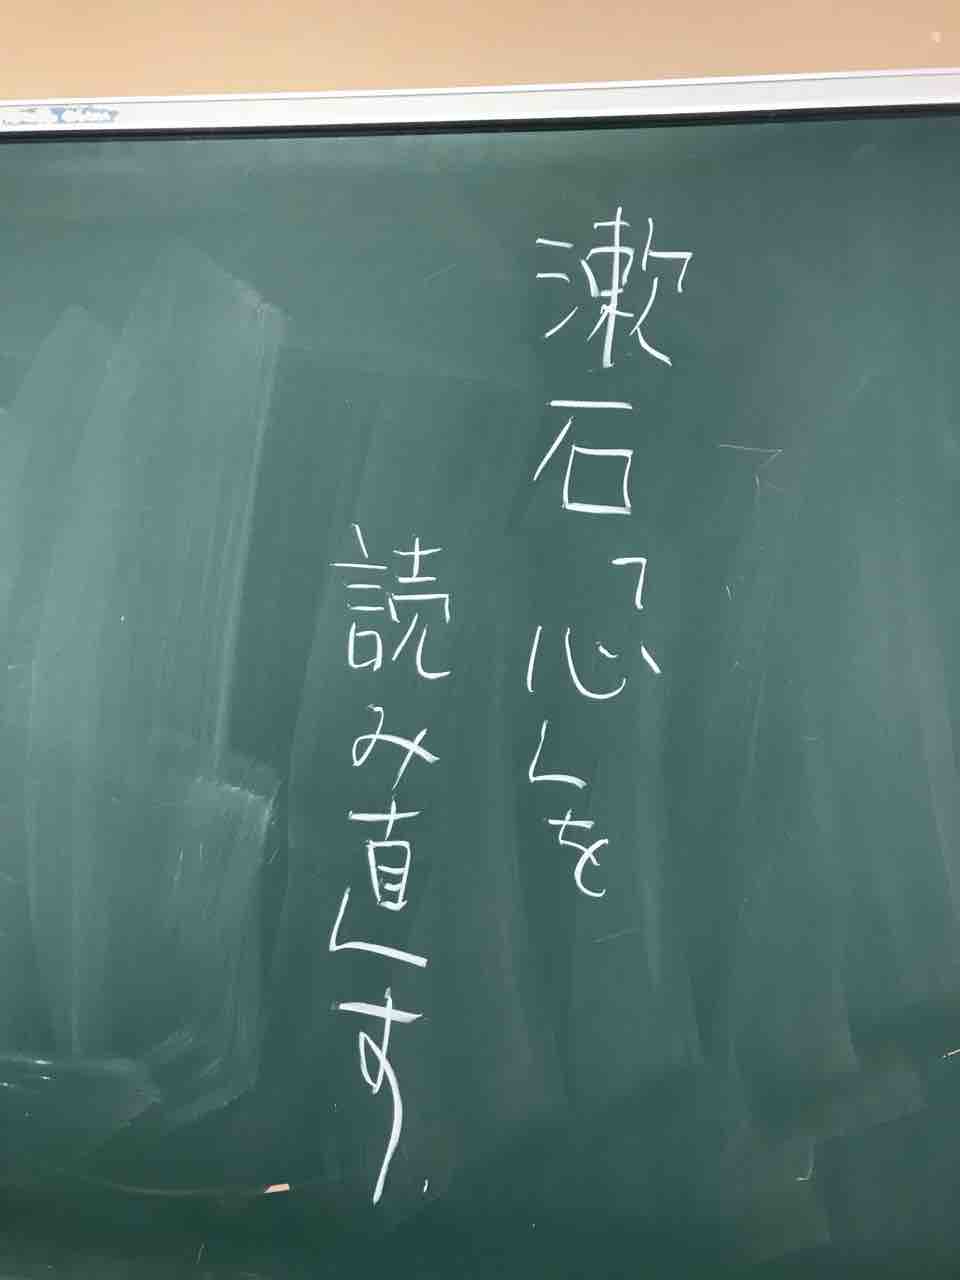 漱石「心」を
読み直す.